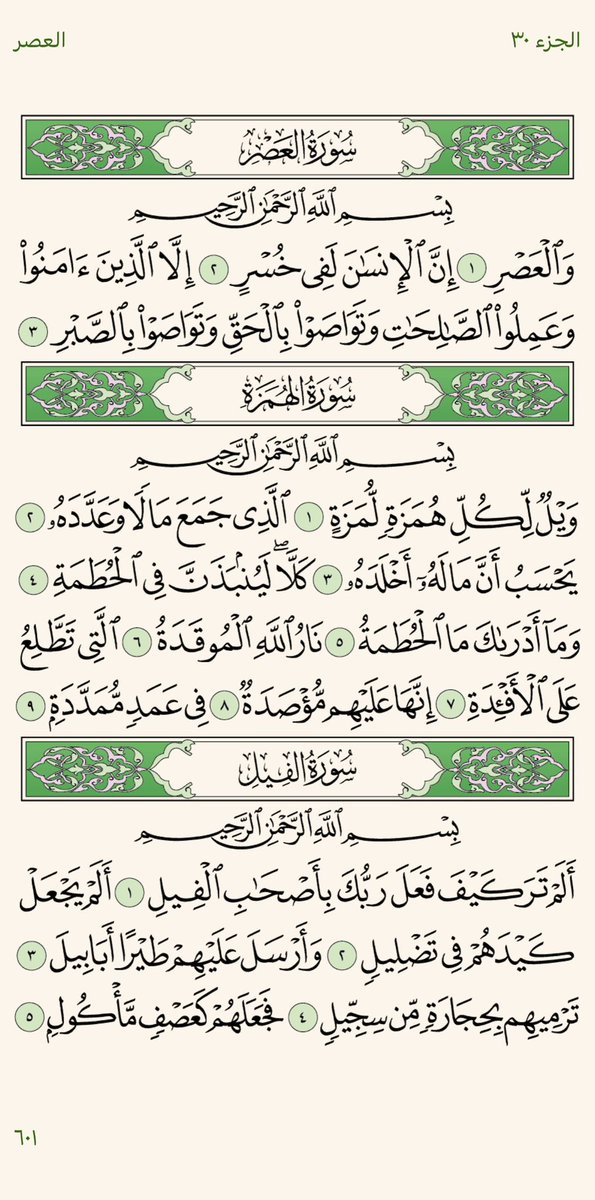 الجزء ٣٠
العصر
سُورَةُ العَصْرِ
بِسْمِ ٱللَّهِ ٱلرَّحْمَٰنِ ٱلرَّحِيمِ
وَٱلْعَصْرِ ١ إِنَّ ٱلْإِنسَٰنَ لَفِى خُسْرٍ ٢ إِلَّا ٱلَّذِينَ ءَامَنُوا۟
وَعَمِلُوا۟ ٱلصَّٰلِحَٰتِ وَتَوَاصَوْا۟ بِٱلْحَقِّ وَتَوَاصَوْا۟ بِٱلصَّبْرِ ٣
سُورَةُ الهُمَزَةِ
بِسْمِ ٱللَّهِ ٱلرَّحْمَٰنِ ٱلرَّحِيمِ
وَيْلٌ لِّكُلِّ هُمَزَةٍ لُّمَزَةٍ ١ ٱلَّذِى جَمَعَ مَالًا وَعَدَّدَهُۥ ٢
يَحْسَبُ أَنَّ مَالَهُۥٓ أَخْلَدَهُۥ ٣ كَلَّا ۖ لَيُنۢبَذَنَّ فِى ٱلْحُطَمَةِ ٤
وَمَآ أَدْرَىٰكَ مَا ٱلْحُطَمَةُ ٥ نَارُ ٱللَّهِ ٱلْمُوقَدَةُ ٦ ٱلَّتِى تَطَّلِعُ
عَلَى ٱلْأَفْـِٔدَةِ ٧ إِنَّهَا عَلَيْهِم مُّؤْصَدَةٌ ٨ فِى عَمَدٍ مُّمَدَّدَةٍۭ ٩
سُورَةُ الفِيلِ
بِسْمِ ٱللَّهِ ٱلرَّحْمَٰنِ ٱلرَّحِيمِ
أَلَمْ تَرَ كَيْفَ فَعَلَ رَبُّكَ بِأَصْحَٰبِ ٱلْفِيلِ ١ أَلَمْ يَجْعَلْ
كَيْدَهُمْ فِى تَضْلِيلٍ ٢ وَأَرْسَلَ عَلَيْهِمْ طَيْرًا أَبَابِيلَ ٣
تَرْمِيهِم بِحِجَارَةٍ مِّن سِجِّيلٍ ٤ فَجَعَلَهُمْ كَعَصْفٍ مَّأْكُولٍۭ ٥
٦٠١